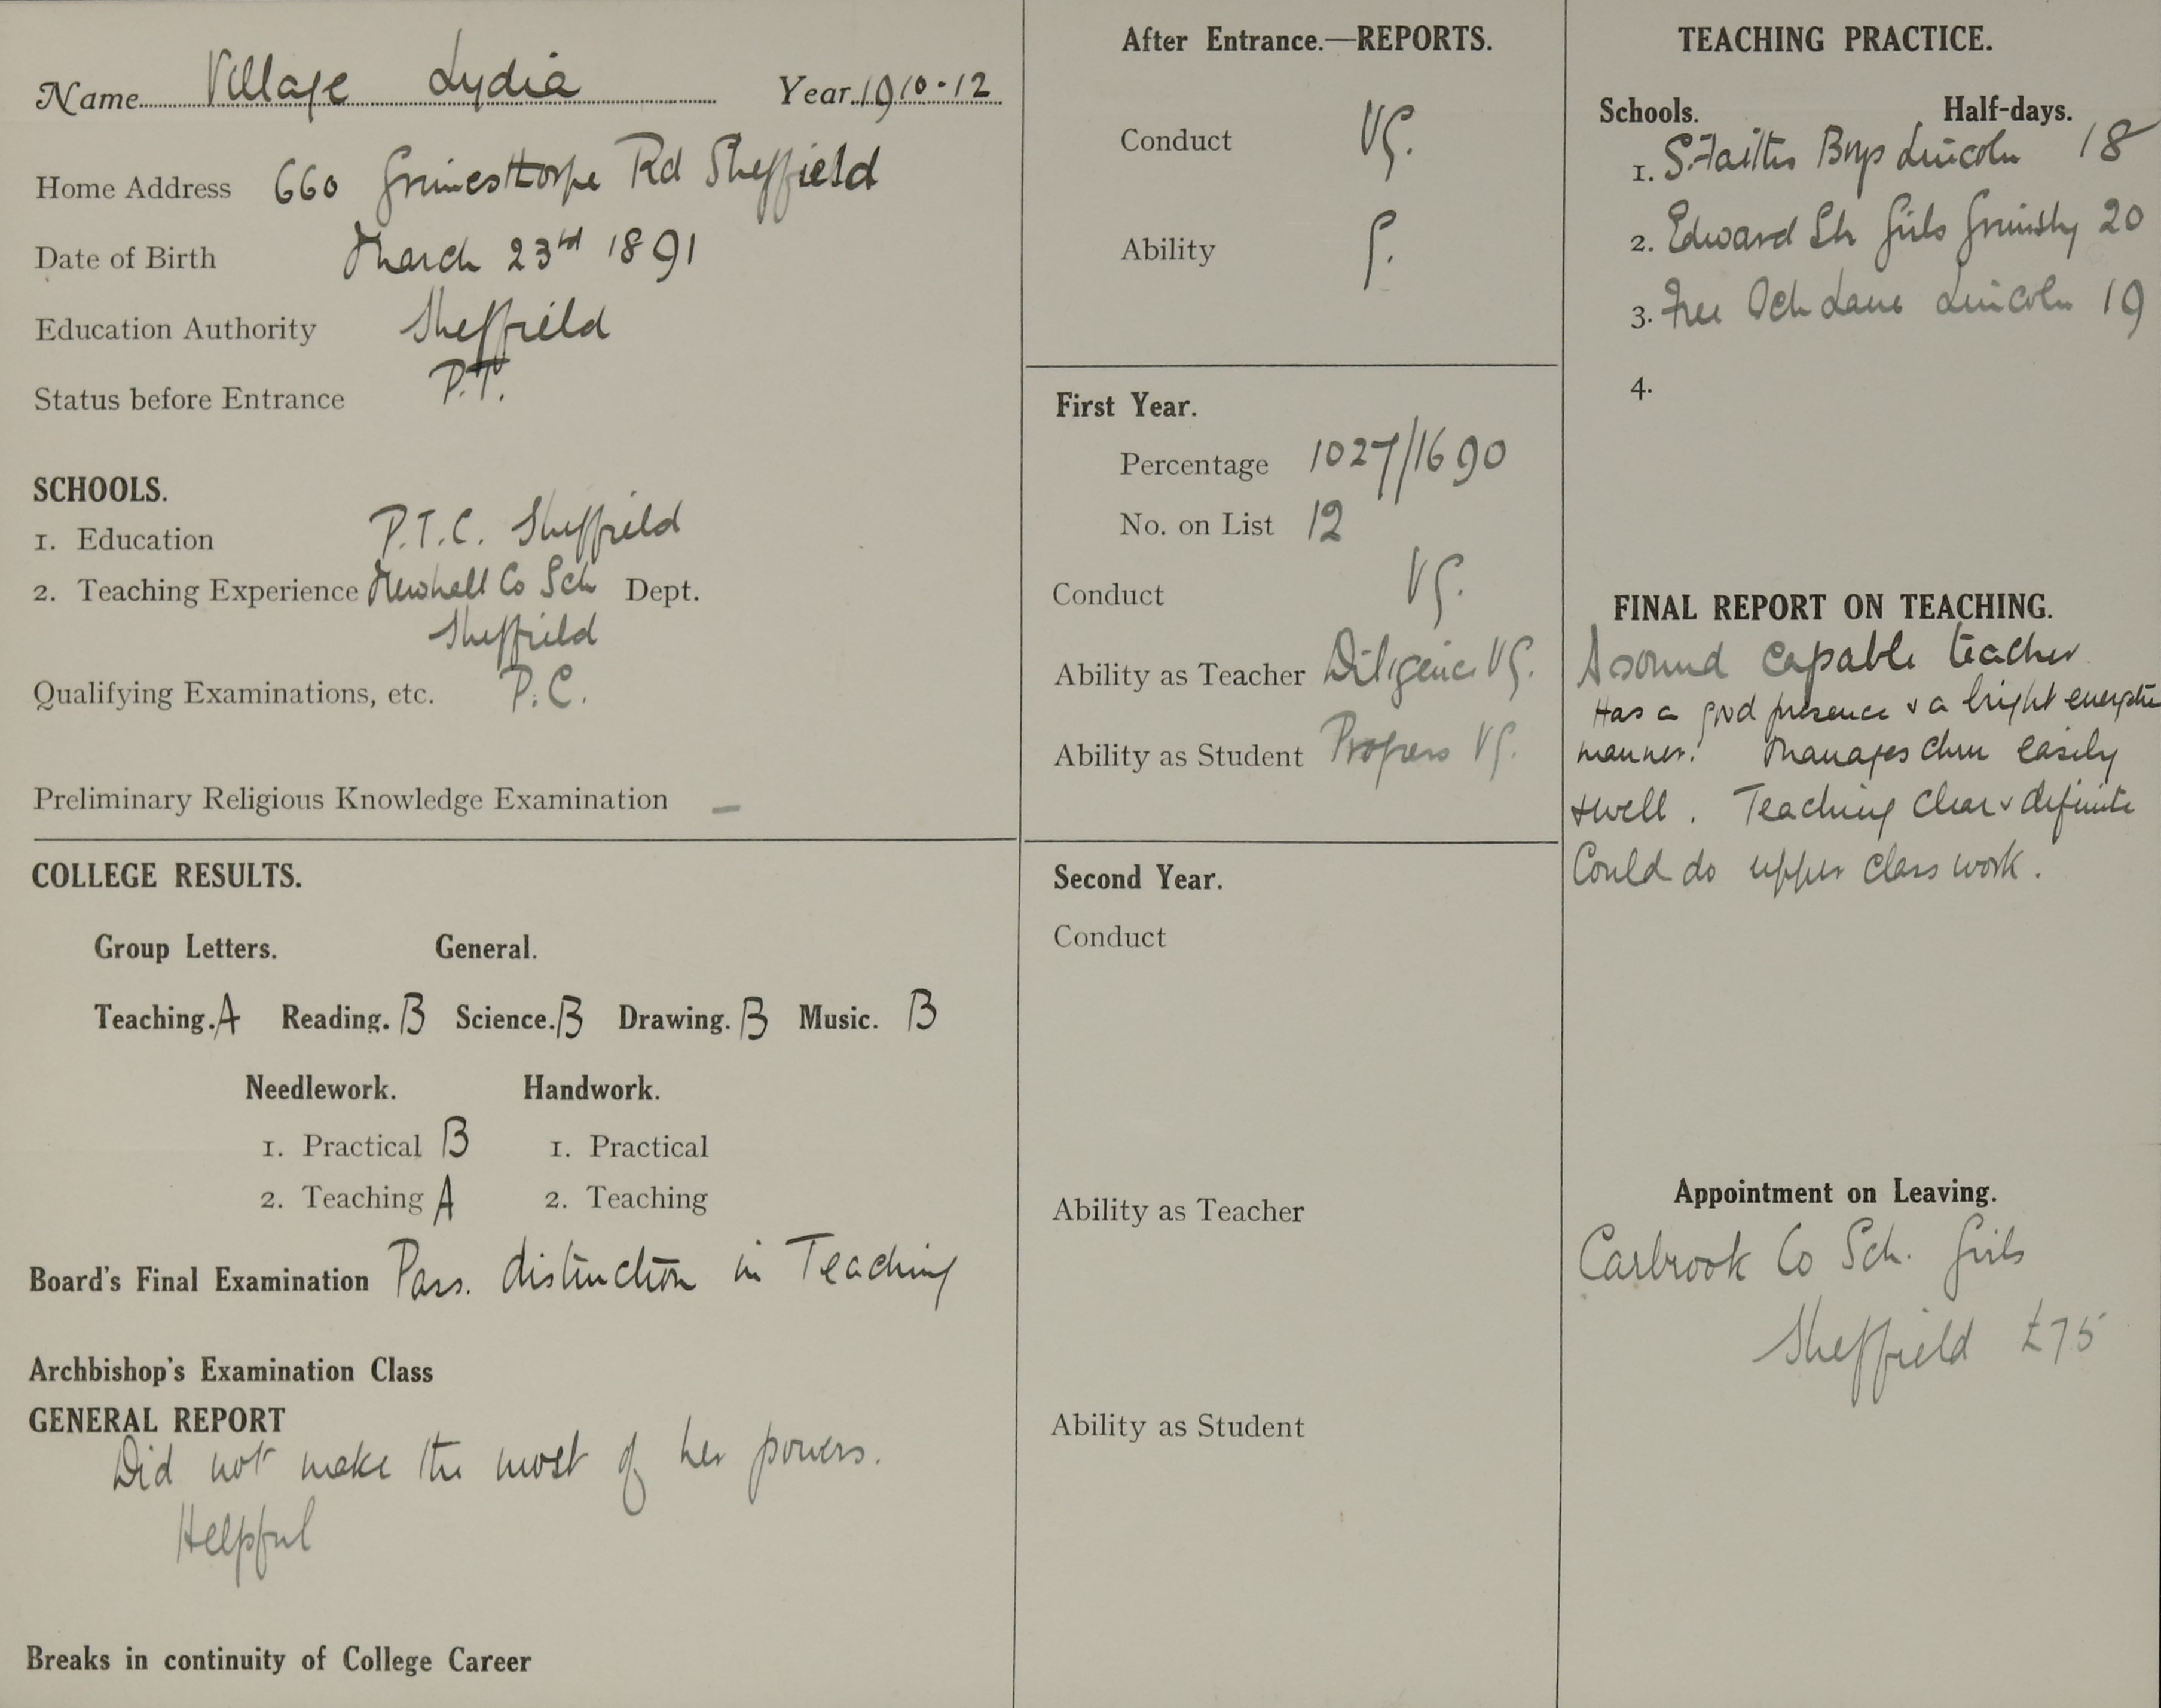 Name Village Lydia Year 1910-12
Home Address 660 Grimesthorpe Rd Sheffield
Date of Birth March 23rd 1891
Education Authority Sheffield
Status before Entrance P.T.
SCHOOLS.
1. Education P.T.C. Sheffield
2. Teaching Experience Newhall Co Sch Dept.
Sheffield
Qualifying Examinations, etc. P.C.
Preliminary Religious Knowledge Examination —
COLLEGE RESULTS.
Group Letters. General.
Teaching. A Reading. B Science. B Drawing. B Music. B
Needlework. Handwork.
1. Practical B 1. Practical
2. Teaching A 2. Teaching
Board's Final Examination Pass. distinction in Teaching
Archbishop's Examination Class
GENERAL REPORT
Did not make the most of her powers.
Helpful
Breaks in continuity of College Career
After Entrance.—REPORTS.
Conduct VG.
Ability G.
First Year.
Percentage 1027/1690
No. on List 12
Conduct VG.
Ability as Teacher Diligence VG.
Ability as Student Progress VG.
Second Year.
Conduct
Ability as Teacher
Ability as Student
TEACHING PRACTICE.
Schools. Half-days.
1. S. Faiths Boys Lincoln 18
2. Edward St Girls Grimsby 20
3. Free Sch Lane Lincoln 19
4.
FINAL REPORT ON TEACHING.
A sound capable teacher
Has a good presence & a bright energetic
manner. Manages chn easily
& well. Teaching clear & definite
Could do upper class work.
Appointment on Leaving.
Carbrook Co Sch. Girls
Sheffield £75